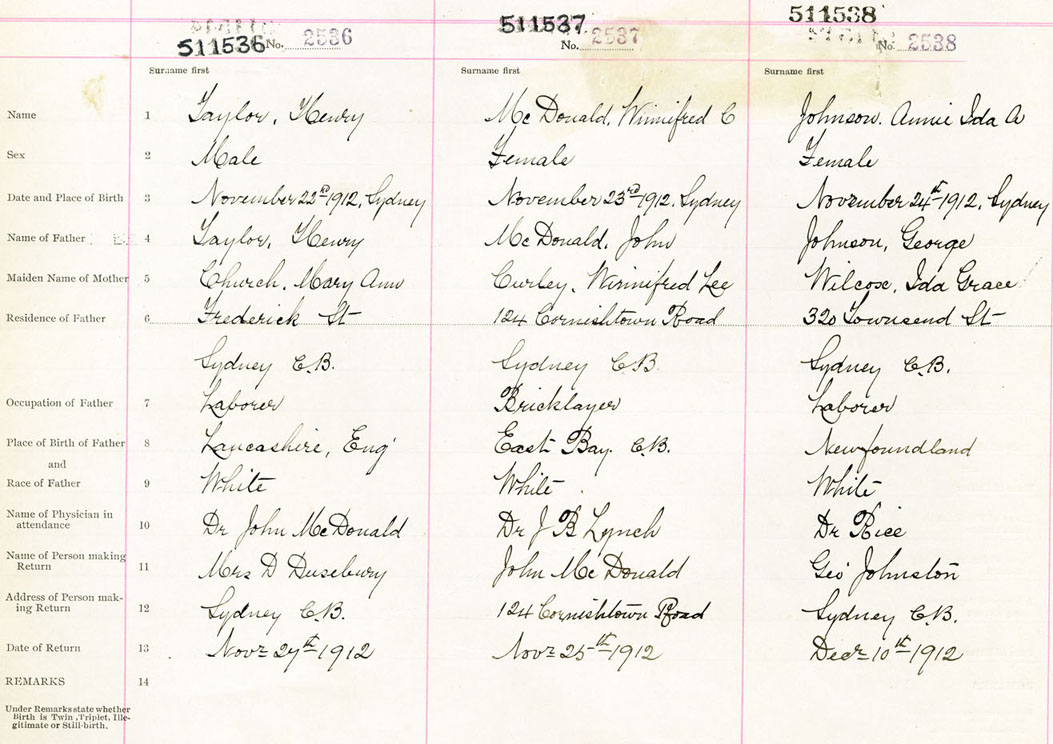 511536 No. 2536 511537 No. 2537 511538 No. 2538
Surname first Surname first Surname first
Name 1 Taylor, Henry McDonald, Winnifred C Johnson, Annie Ida A
Sex 2 Male Female Female
Date and Place of Birth 3 November 22nd 1912, Sydney November 23rd 1912, Sydney November 24th 1912, Sydney
Name of Father 4 Taylor, Henry McDonald, John Johnson, George
Maiden Name of Mother 5 Church, Mary Ann Curley, Winnifred Lee Wilcox, Ida Grace
Residence of Father 6 Frederick St 124 Cornishtown Road 320 Townsend St
Sydney C.B. Sydney C.B. Sydney C.B.
Occupation of Father 7 Laborer Bricklayer Laborer
Place of Birth of Father 8 Lancashire, Eng East Bay. C.B. Newfoundland
and
Race of Father 9 White White White
Name of Physician in
attendance 10 Dr John McDonald Dr J B Lynch Dr Rice
Name of Person making
Return 11 Mrs D Dusebury John McDonald Geo Johnston
Address of Person mak-
ing Return 12 Sydney C.B. 124 Cornishtown Road Sydney C.B.
Date of Return 13 Novr 27th 1912 Novr 25th 1912 Decr 10th 1912
REMARKS 14
Under Remarks state whether
Birth is Twin, Triplet, Ille-
gitimate or Still-birth.